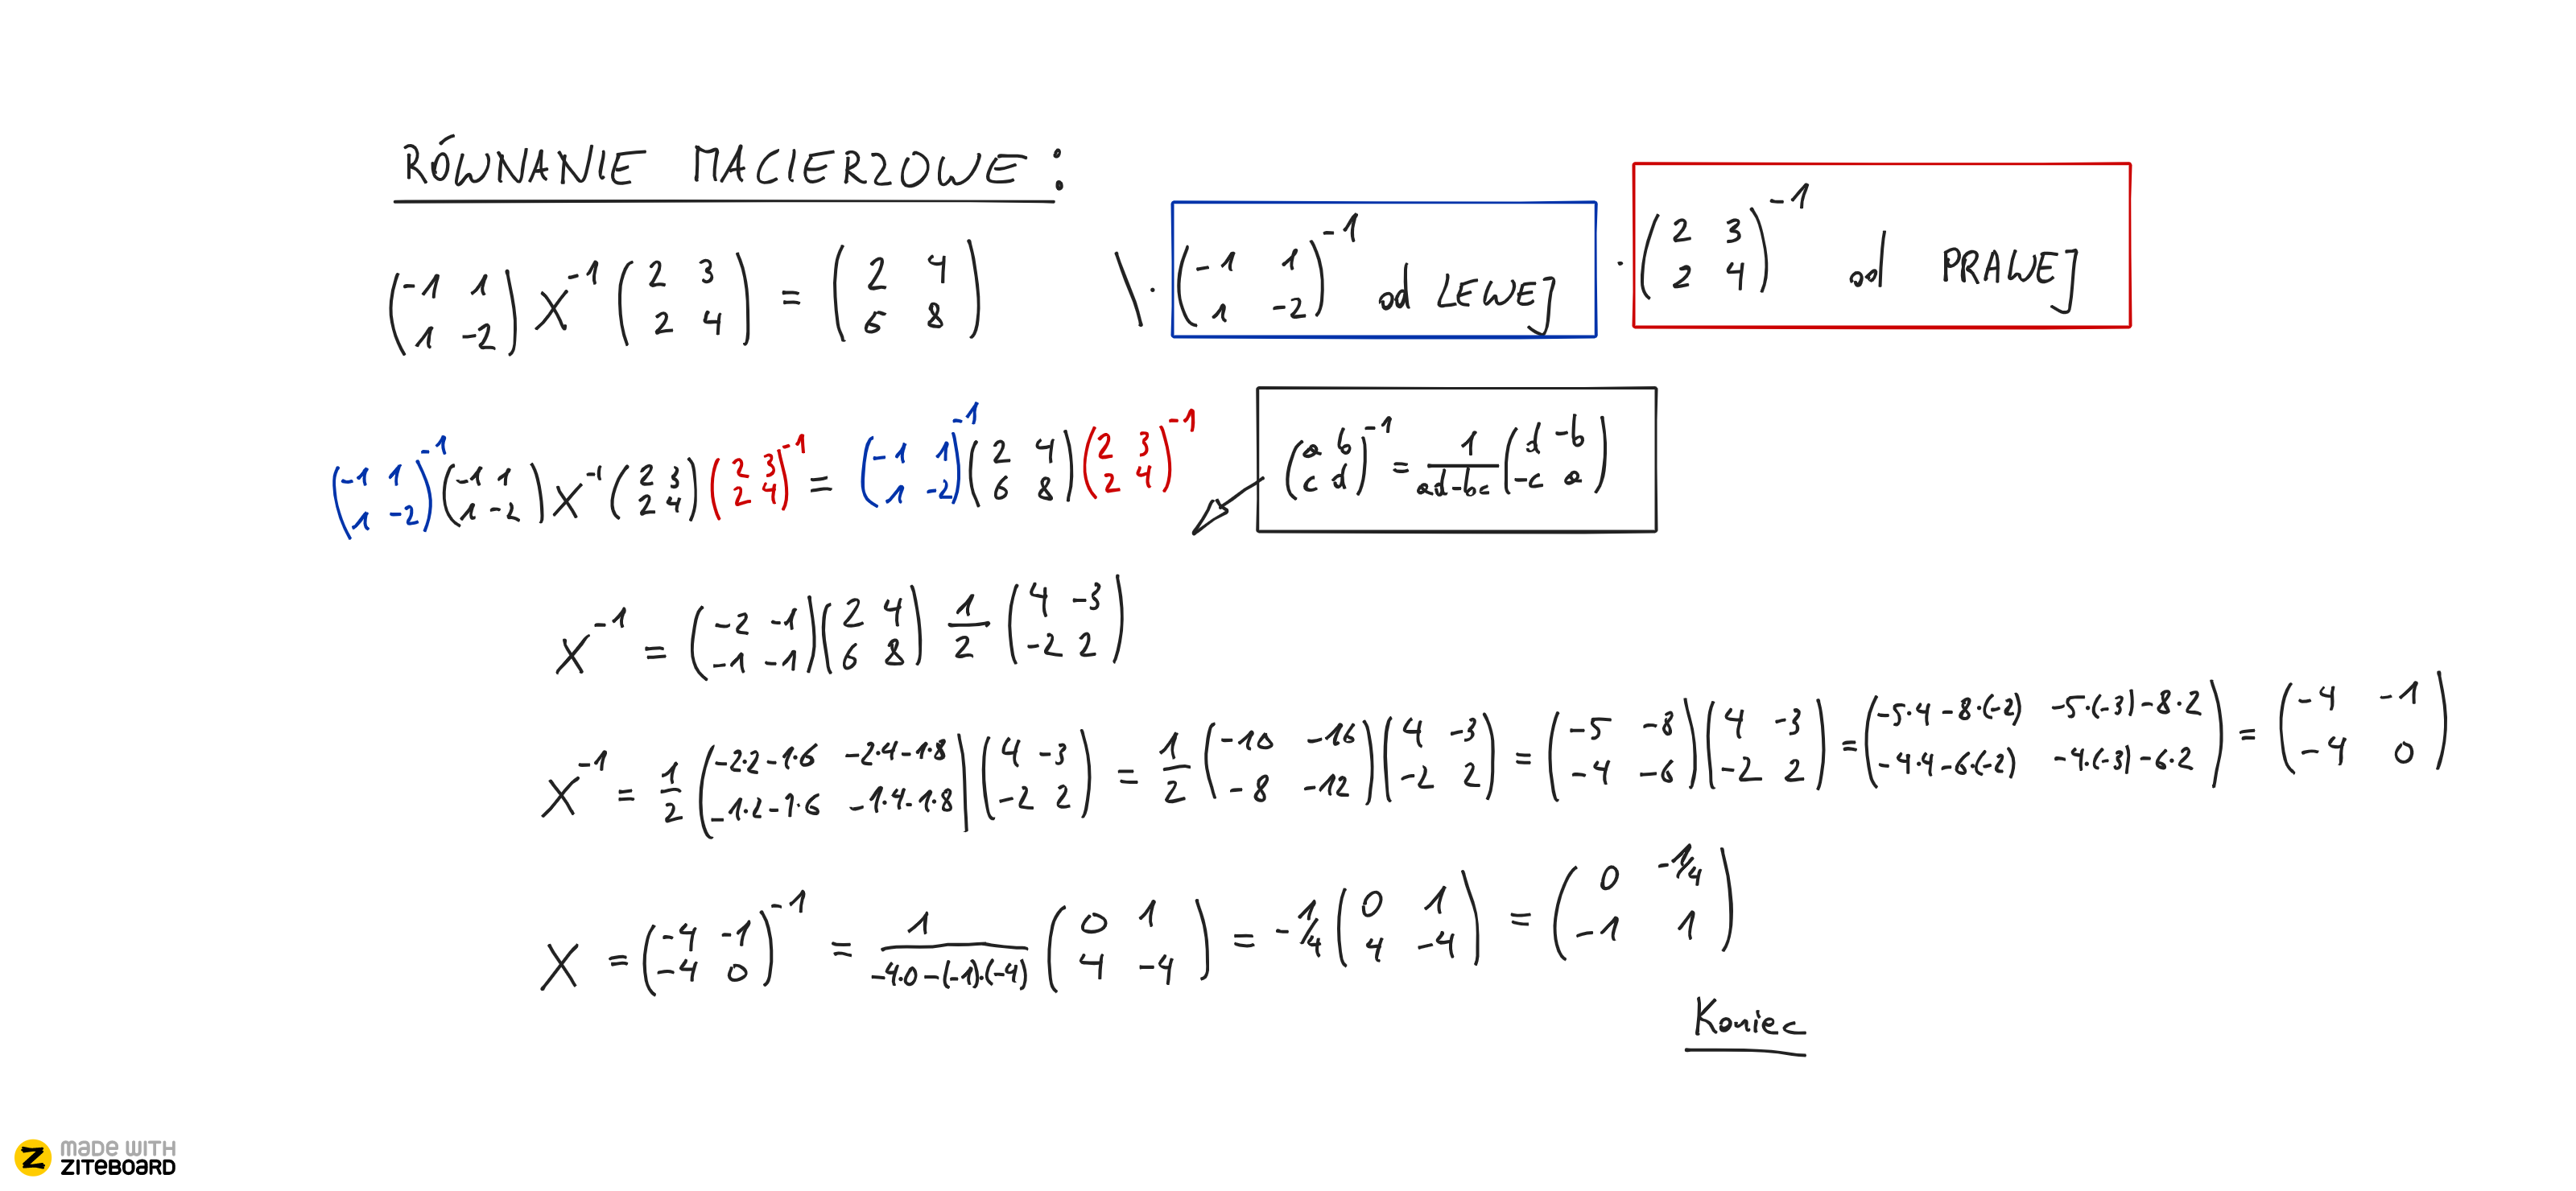 RÓWNANIE MACIERZOWE:
(-1 1; 1 -2) X^-1 (2 3; 2 4) = (2 4; 6 8) \ · (-1 1; 1 -2)^-1 od LEWEJ · (2 3; 2 4)^-1 od PRAWEJ
(-1 1; 1 -2)^-1 (-1 1; 1 -2) X^-1 (2 3; 2 4) (2 3; 2 4)^-1 = (-1 1; 1 -2)^-1 (2 4; 6 8) (2 3; 2 4)^-1
(a b; c d)^-1 = 1/(ad-bc) (d -b; -c a)
X^-1 = (-2 -1; -1 -1) (2 4; 6 8) 1/2 (4 -3; -2 2)
X^-1 = 1/2 (-2·2-1·6 -2·4-1·8; -1·2-1·6 -1·4-1·8) (4 -3; -2 2) = 1/2 (-10 -16; -8 -12) (4 -3; -2 2) = (-5 -8; -4 -6) (4 -3; -2 2) = (-5·4-8·(-2) -5·(-3)-8·2; -4·4-6·(-2) -4·(-3)-6·2) = (-4 -1; -4 0)
X = (-4 -1; -4 0)^-1 = 1/(-4·0-(-1)·(-4)) (0 1; 4 -4) = -1/4 (0 1; 4 -4) = (0 -1/4; -1 1)
Koniec
MADE WITH
ZITEBOARD